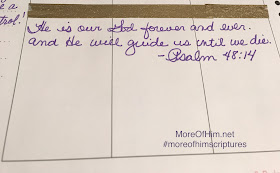 e a
trol!
He is our God forever and ever.
and He will guide us until we die.
- Psalm 48:14
MoreOfHim.net
#moreofhimscriptures